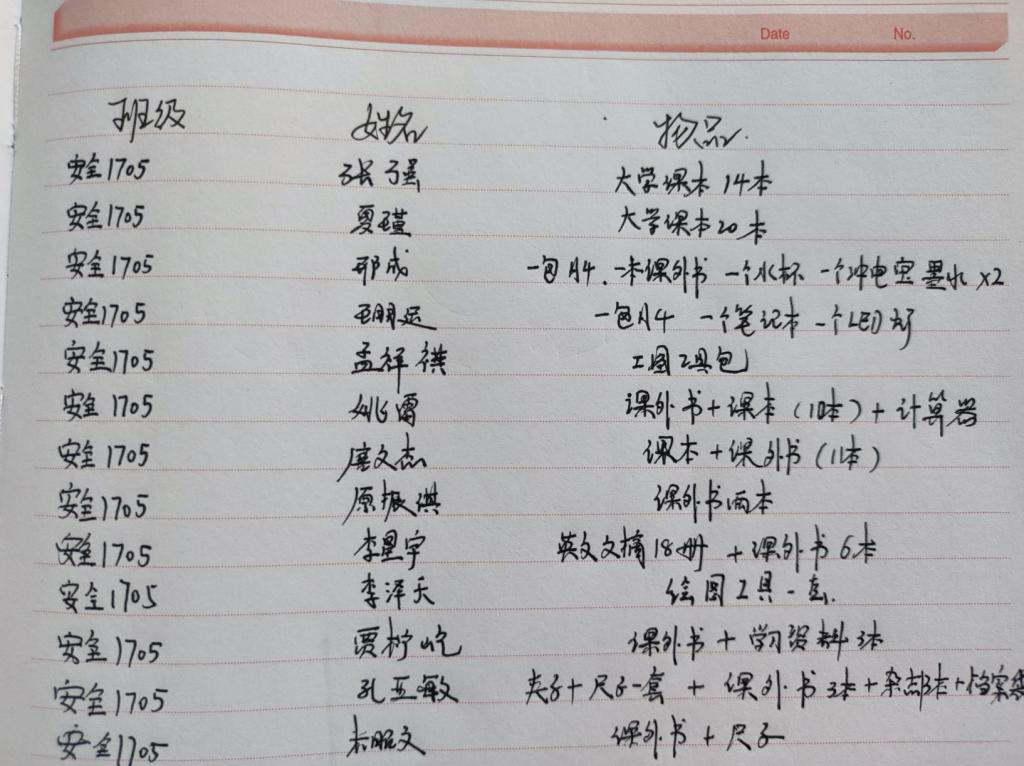 Date No.
班级 姓名 物品
安全1705 张强 大学课本 14本
安全1705 夏瑾 大学课本20本
安全1705 邢成 一包A4、一本课外书 一个水杯 一个冲电宝 墨水 x2
安全1705 一包A4 一个笔记本 一个LED灯
安全1705 孟祥祺 工图工具包
安全1705 姚雷 课外书+课本(10本)+计算器
安全1705 唐文杰 课本+课外书(11本)
安全1705 原振洪 课外书两本
安全1705 李星宇 英文文摘18册 +课外书6本
安全1705 李泽天 绘图工具一套.
安全1705 贾柠屹 课外书 + 学习资料3本
安全1705 孔亚敏 夹子+尺子一套 + 课外书3本+杂志3本+档案袋
安全1705 课外书 + 尺子